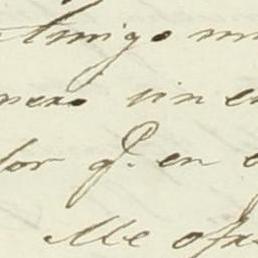 Amigo m
nero sin e
dor q.e en
Me ofre